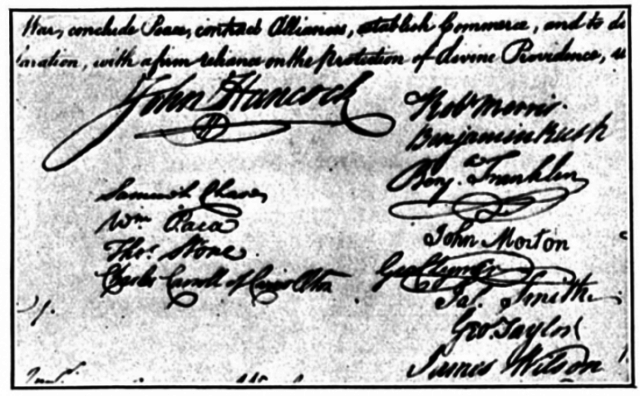 War, conclude Peace, contract Alliances, establish Commerce, and to do
laration, with a firm reliance on the protection of divine Providence,
John Hancock
Samuel Chase
Wm. Paca
Thos. Stone
Charles Carroll of Carrollton
Robt Morris
Benjamin Rush
Benja. Franklin
John Morton
Geo Clymer
Jas. Smith
Geo. Taylor
James Wilson